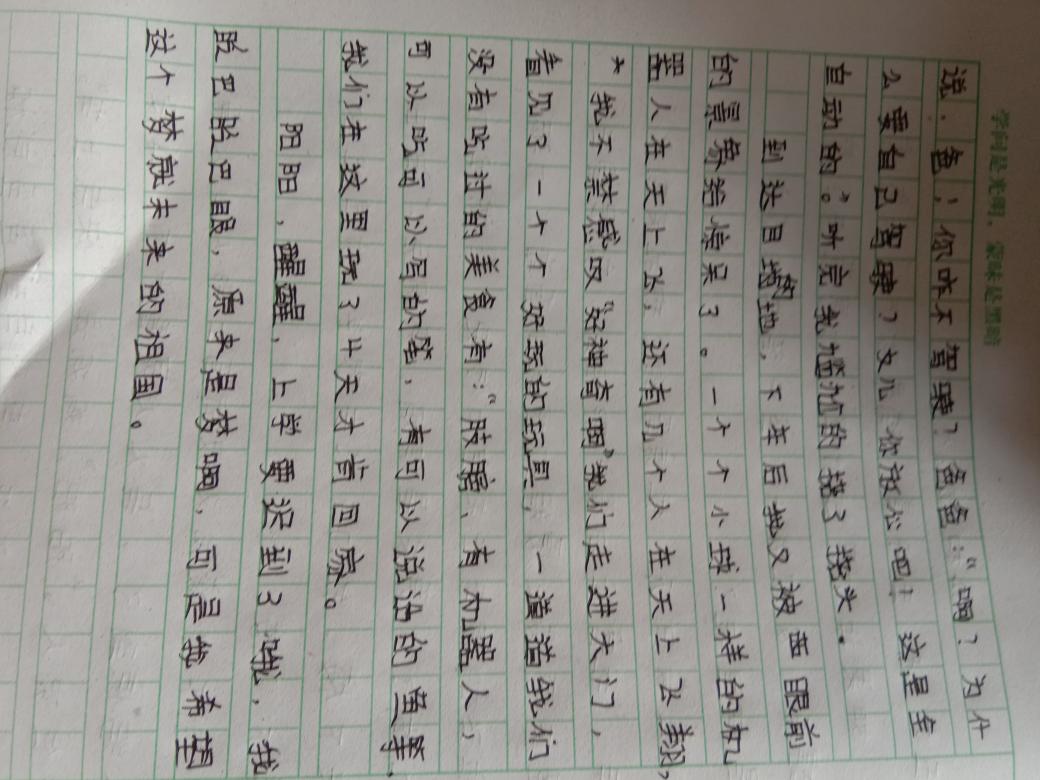 学问是光明，蒙昧是黑暗
说：爸，你咋不驾驶？爸爸：“啊？为什
么要自己驾驶？女儿你放心吧！这是全
自动的。”听完我尴尬的挠了挠头。
到达目的地，下车后我又被西眼前
的景象给惊呆了。一个个小球一样的机
器人在天上飞，还有几个人在天上飞翔，
我不禁感叹“好神奇啊”我们走进大门，
看见了一个个好玩的玩具，一道道我们
没有吃过的美食有：“ 有机器人，
可以吃可以写的笔，有可以说话的 笔等，
我们在这里玩了4天才肯回家。
阳阳，醒醒，上学要迟到了哦，我
眨巴眨巴眼，原来是梦啊，可是我希望
这个梦就未来的祖国。